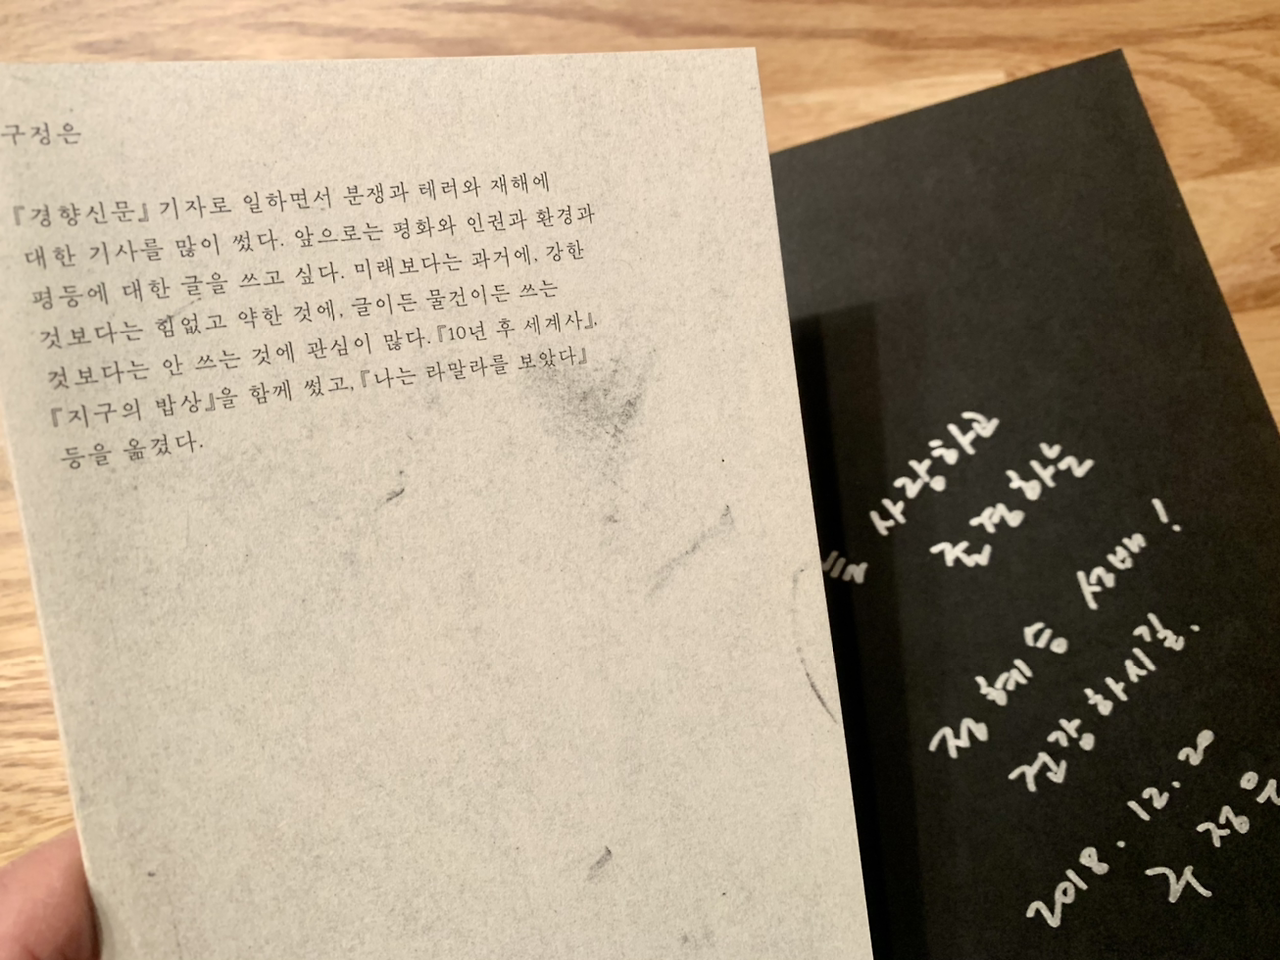 구정은
『경향신문』 기자로 일하면서 분쟁과 테러와 재해에
대한 기사를 많이 썼다. 앞으로는 평화와 인권과 환경과
평등에 대한 글을 쓰고 싶다. 미래보다는 과거에, 강한
것보다는 힘없고 약한 것에, 글이든 물건이든 쓰는
것보다는 안 쓰는 것에 관심이 많다. 『10년 후 세계사』,
『지구의 밥상』을 함께 썼고, 『나는 라말라를 보았다』
등을 옮겼다.
사랑하고
존경하는
정혜승 선배!
건강하시길.
2018. 12. 20
구정은